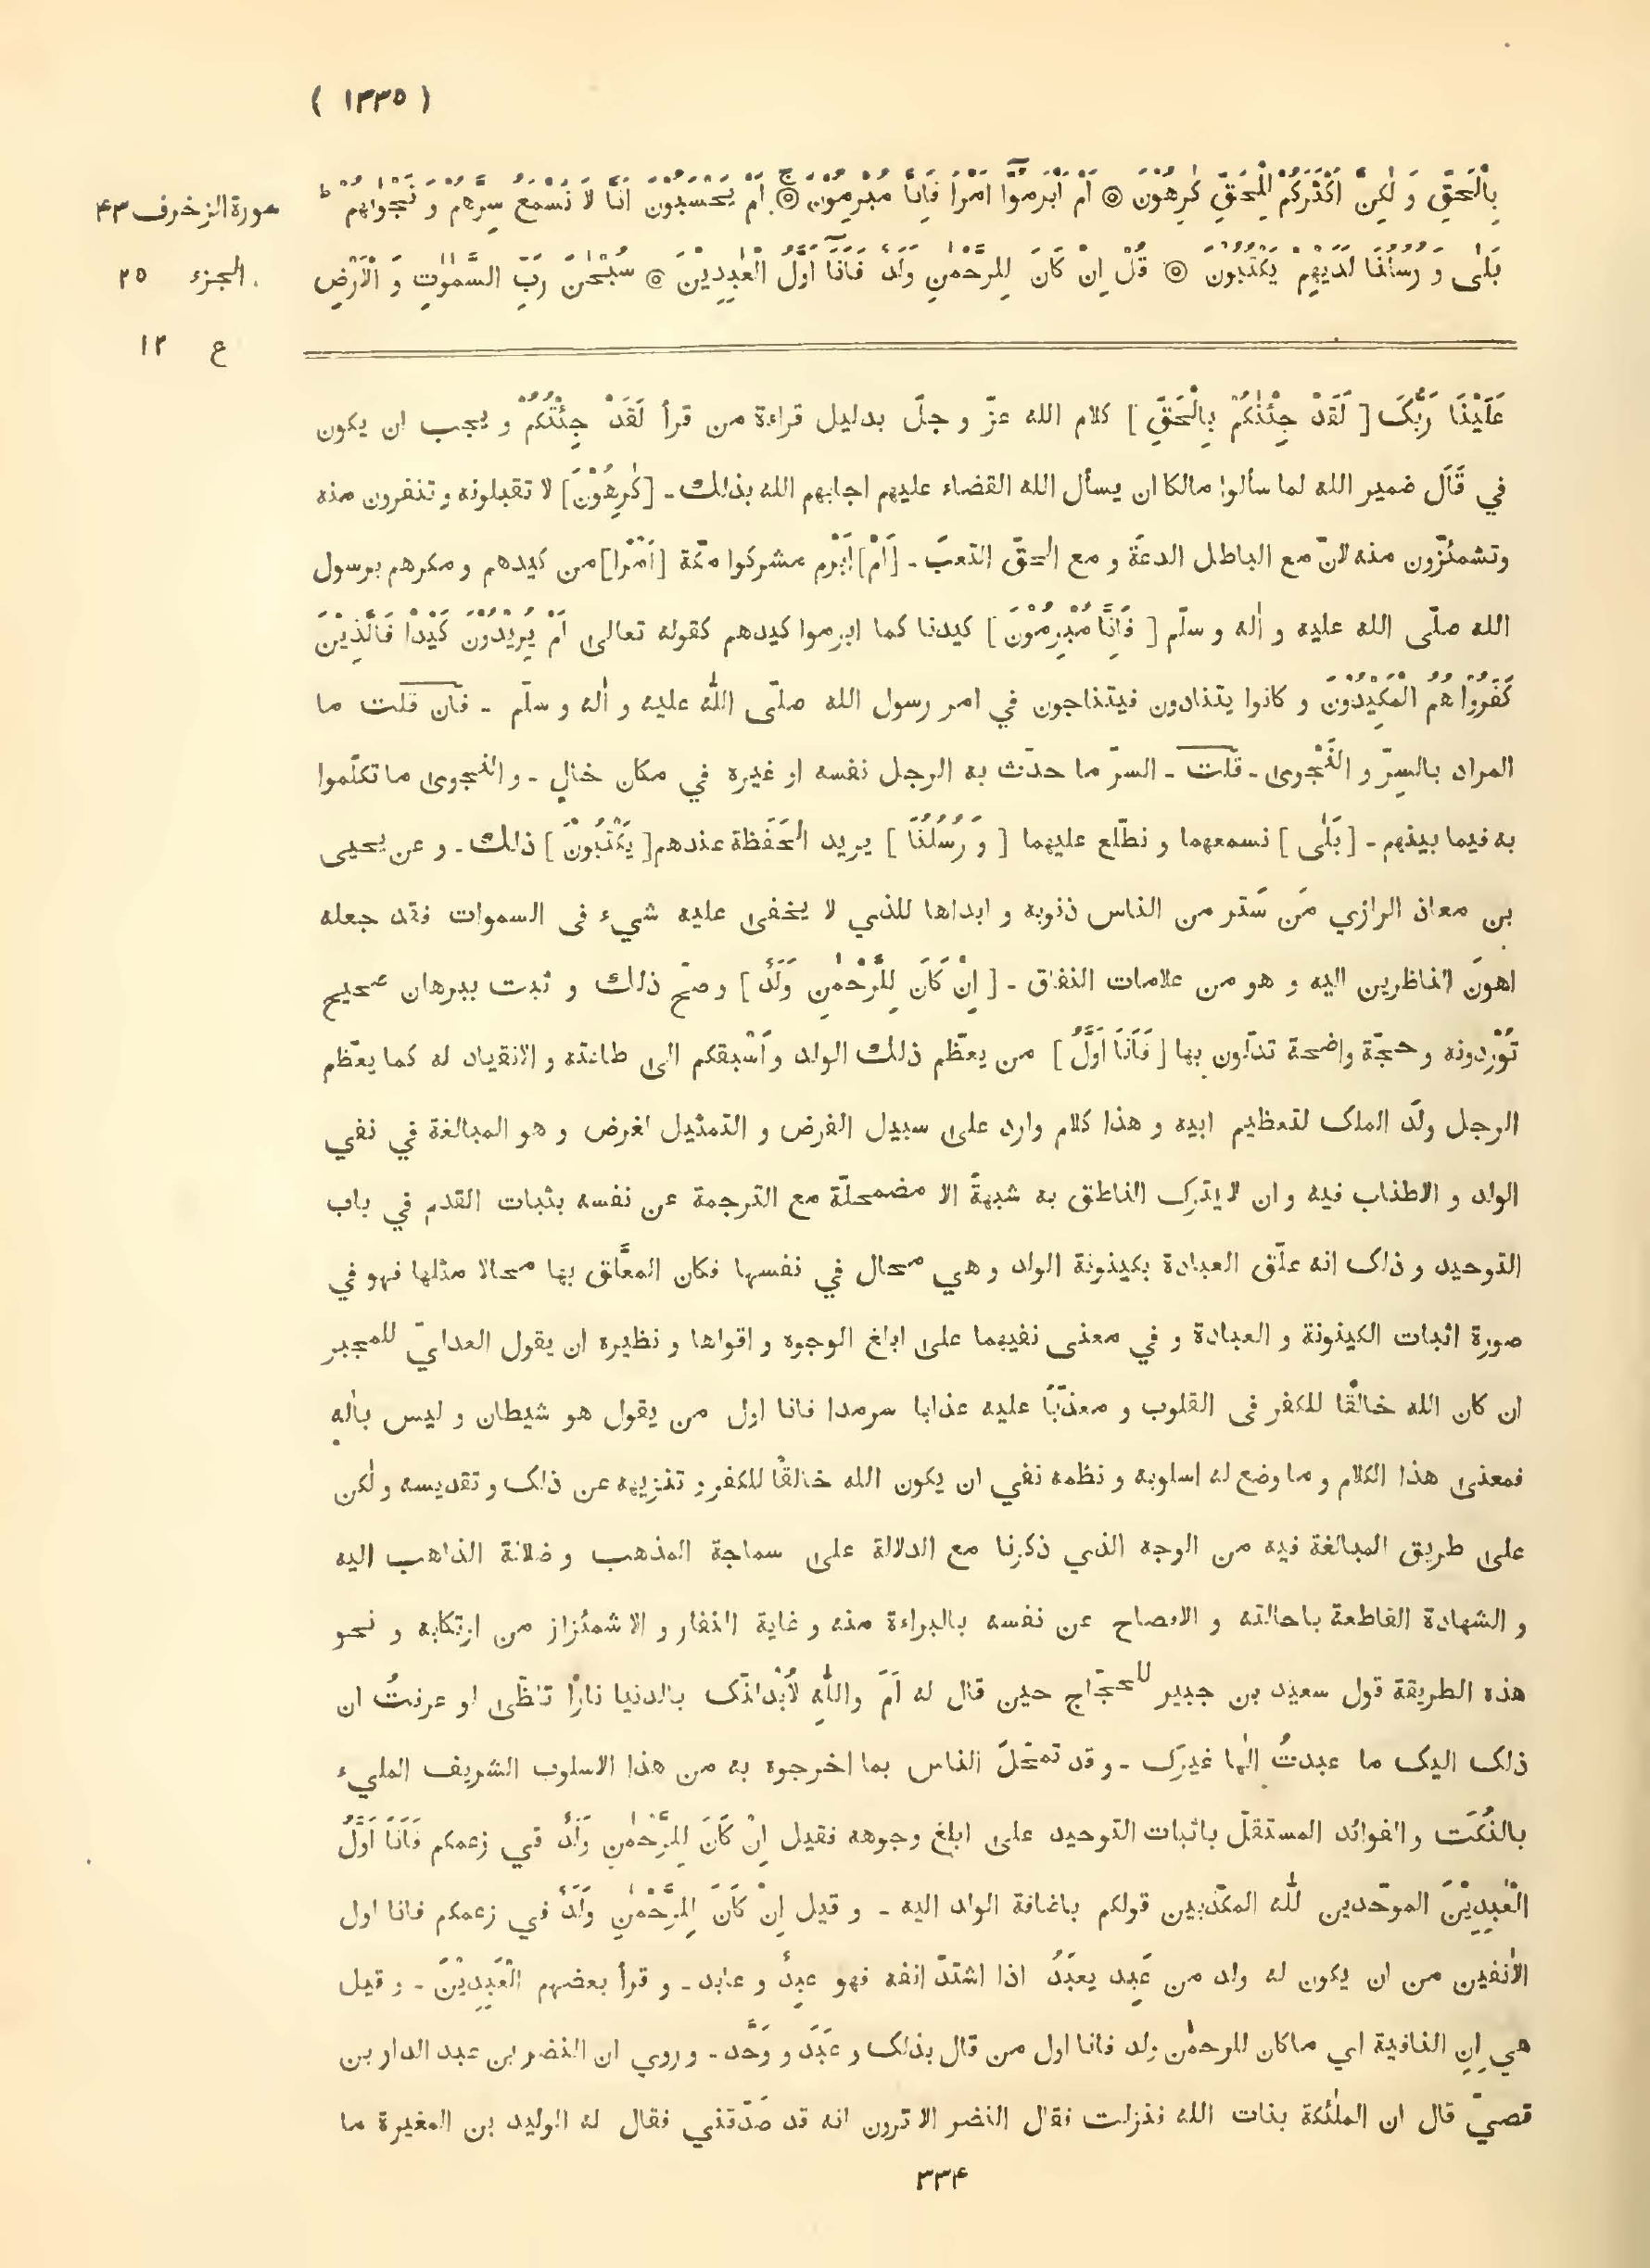 ( ١٣٣٥ )
بِالْحَقِّ وَ لٰكِنَّ اَكْثَرَكُمْ لِلْحَقِّ كٰرِهُوْنَ ۞ اَمْ اَبْرَمُوْٓا اَمْرًا فَاِنَّا مُبْرِمُوْنَ ۞ ج اَمْ يَحْسَبُوْنَ اَنَّا لَا نَسْمَعُ سِرَّهُمْ وَ نَجْوٰىهُمْ ط
سورة الزخرف ٤٣
بَلٰى وَ رُسُلُنَا لَدَيْهِمْ يَكْتُبُوْنَ ۞ قُلْ اِنْ كَانَ لِلرَّحْمٰنِ وَلَدٌ فَاَنَآ اَوَّلُ الْعٰبِدِيْنَ ۞ سُبْحٰنَ رَبِّ السَّمٰوٰتِ وَ الْاَرْضِ
الجزء ٢٥
ع ١٢
عَلَيْنَا رَبُّكَ [ لَقَدْ جِئْنٰكُمْ بِالْحَقِّ ] كلام الله عزّ و جلّ بدليل قراءة من قرأ لَقَدْ جِئْتُكُمْ و يجب ان يكون
في قَالَ ضمير الله لما سألوا مالكا ان يسأل الله القضاء عليهم اجابهم الله بذلك ـ [كٰرِهُوْنَ] لا تقبلونه و تنفرون منه
وتشمئزّون منه لانّ مع الباطل الدعةَ و مع الحقّ التعبَ ـ [اَمْ] اَبْرم مشركوا مكّة [اَمْرًا] من كيدهم و مكرهم برسول
الله صلّى الله عليه و اٰله و سلّم [ فَاِنَّا مُبْرِمُوْنَ ] كيدنا كما ابرموا كيدهم كقوله تعالى اَمْ يُرِيْدُوْنَ كَيْدًا فَالَّذِيْنَ
كَفَرُوْا هُمُ الْمَكِيْدُوْنَ و كانوا يتنادون فيتناجون في امر رسول الله صلّى اللّٰه عليه و اٰله و سلّم ـ فان قلت ما
المراد بالسِرّ و النَّجْوى ـ قلت ـ السرّ ما حدّث به الرجل نفسه او غيره في مكان خالٍ ـ و النجوى ما تكلّموا
به فيما بينهم ـ [ بَلٰى ] نسمعهما و نطّلع عليهما [ وَ رُسُلُنَا ] يريد الحَفَظة عندهم [ يَكْتُبُوْنَ ] ذلك ـ و عن يحيى
بن معاذ الرازي مَن سَتر من الناس ذنوبه و ابداها للذي لا يخفى عليه شيء فى السموات فقد جعله
اهونَ الناظرين اليه و هو من علامات النفاق ـ [ اِنْ كَانَ لِلرَّحْمٰنِ وَلَدٌ ] و صحّ ذلك و ثبت ببرهان صحيح
تُوْرِدونه و حجّة واضحة تدلّون بها [ فَاَنَا اَوَّلُ ] من يعظّم ذلك الولد و اَسْبقكم الى طاعته و الانقياد له كما يعظّم
الرجل ولَد الملك لتعظيم ابيه و هذا كلام وارد على سبيل الفرض و التمثيل لغرض و هو المبالغة في نفي
الولد و الاطناب فيه و ان لا يَترك الناطق به شبهةً الا مضمحلّة مع الترجمة عن نفسه بثبات القدم في باب
التوحيد و ذلك انه علّق العبادة بكينونة الولد و هي محال في نفسها فكان المعلَّق بها محالا مثلها فهو في
صورة اثبات الكينونة و العبادة و في معنى نفيهما على ابلغ الوجوه و اقواها و نظيره ان يقول العدليّ للمجبر
ان كان الله خالقًا للكفر فى القلوب و معذّبًا عليه عذابا سرمدا فانا اول من يقول هو شيطان و ليس باٰلهٍ
فمعنى هذا الكلام و ما وضع له اسلوبه و نظمه نفي ان يكون الله خالقًا للكفر و تنزيهه عن ذلك و تقديسه و لٰكن
على طريق المبالغة فيه من الوجه الذي ذكرنا مع الدلالة على سماجة المذهب و ضلالة الذاهب اليه
و الشهادة القاطعة باحالته و الافصاح عن نفسه بالبراءة منه و غاية النفار و الاشمئزاز من ارتكابه و نحو
هذه الطريقة قول سعيد بن جبير للحجّاج حين قال له اَمَ واللّٰهِ لَاُبْدلنّك بالدنيا نارًا تلظّى لو عرفتُ ان
ذلك اليك ما عبدتُ الٰها غيرَك ـ و قد تمحّلَ الناس بما اخرجوه به من هذا الاسلوب الشريف المليء
بالنُكَت و الفوائد المستقلّ باثبات التوحيد على ابلغ وجوهه فقيل اِنْ كَانَ لِلرَّحْمٰنِ وَلَدٌ في زعمكم فَاَنَا اَوَّلُ
الْعٰبِدِيْنَ الموحّدين للّٰه المكذّبين قولكم باضافة الولد اليه ـ و قيل اِنْ كَانَ لِلرَّحْمٰنِ وَلَدٌ في زعمكم فانا اول
الاٰنفين من ان يكون له ولد من عَبِد يعبَدُ اذا اشتدّ انفه فهو عبِدٌ و عابد ـ و قرأ بعضهم الْعَبِدِيْنَ ـ و قيل
هي اِنِ النافية اي ما كان للرحمٰن ولد فانا اول من قال بذلك و عَبَدَ و وَحَّد ـ و روي ان النضر بن عبد الدار بن
قصيّ قال ان الملٰئكة بنات الله فنزلت فقال النضر الا ترون انه قد صَدّقني فقال له الوليد بن المغيرة ما
٣٣٤